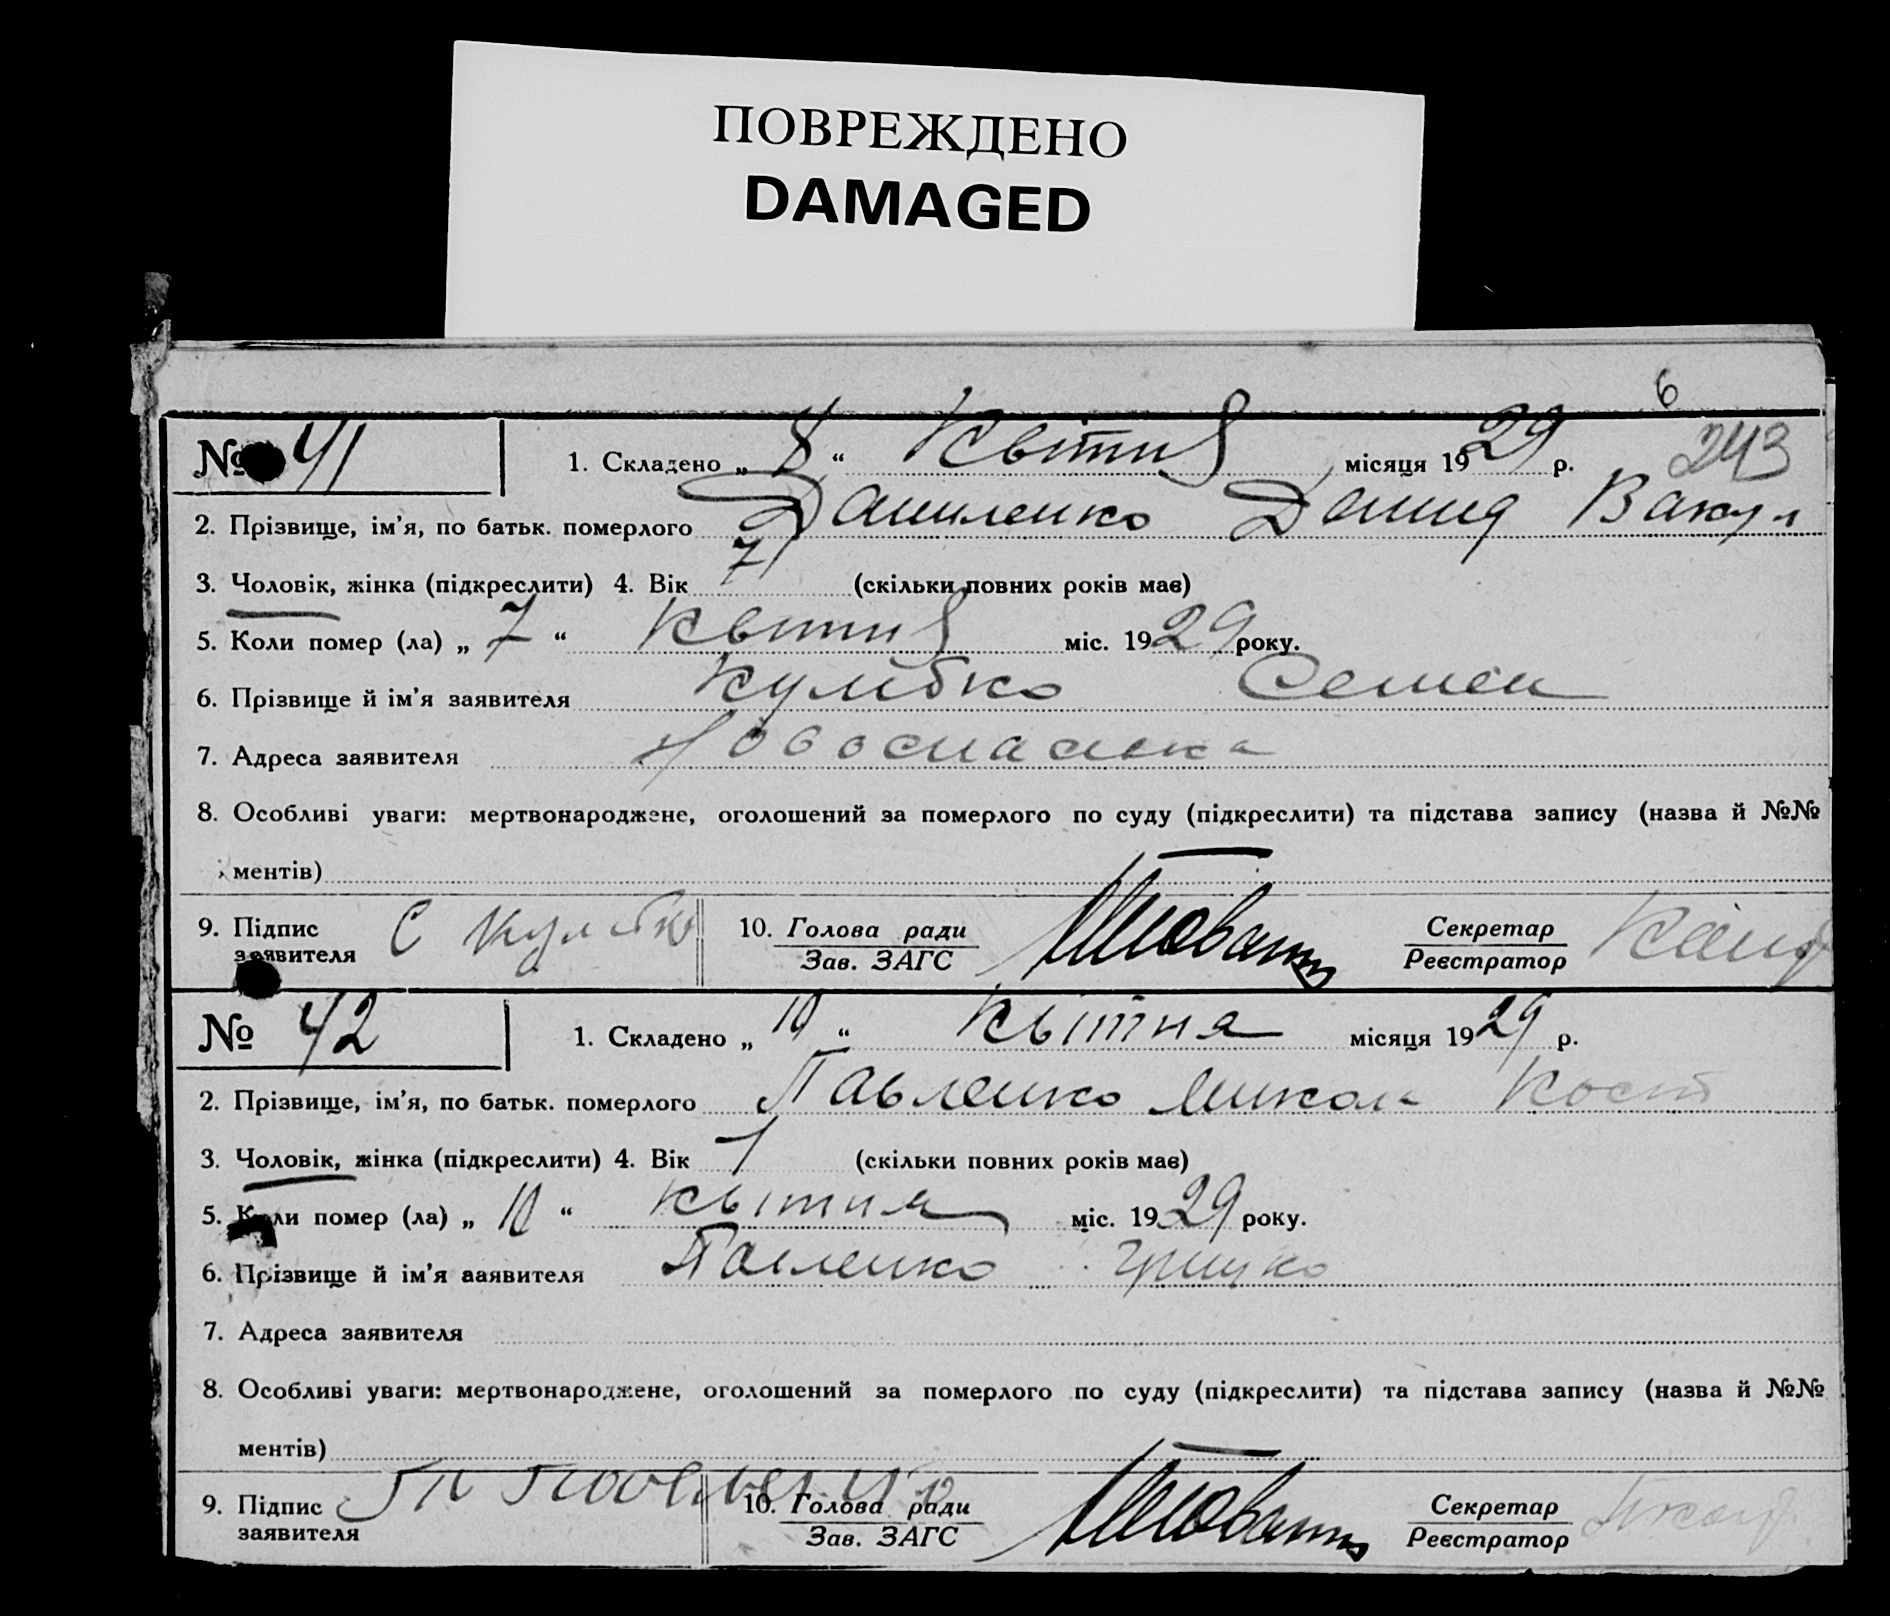 ПОВРЕЖДЕНО
DAMAGED
6
№ 41 1. Складено „ 8 “ Квітня місяця 1929 р. 243
2. Прізвище, ім’я, по батьк. померлого Даниленко Демид Вакул
3. Чоловік, жінка (підкреслити) 4. Вік 71 (скільки повних років має)
5. Коли помер (ла) „ 7 “ Квітня міс. 1929 року.
6. Прізвище й ім’я заявителя Кулибко Семен
7. Адреса заявителя Новоспаська
8. Особливі уваги: мертвонароджене, оголошений за померлого по суду (підкреслити) та підстава запису (назва й №№
ментів)
9. Підпис заявителя С Кулибко 10. Голова ради Зав. ЗАГС Секретар Реєстратор
№ 42 1. Складено „ 10 “ Квітня місяця 1929 р.
2. Прізвище, ім’я, по батьк. померлого Павленко Микола Кост
3. Чоловік, жінка (підкреслити) 4. Вік 1 (скільки повних років має)
5. Коли помер (ла) „ 10 “ Квітня міс. 1929 року.
6. Прізвище й ім’я заявителя Павленко Грицко
7. Адреса заявителя
8. Особливі уваги: мертвонароджене, оголошений за померлого по суду (підкреслити) та підстава запису (назва й №№
ментів)
9. Підпис заявителя 10. Голова ради Зав. ЗАГС Секретар Реєстратор